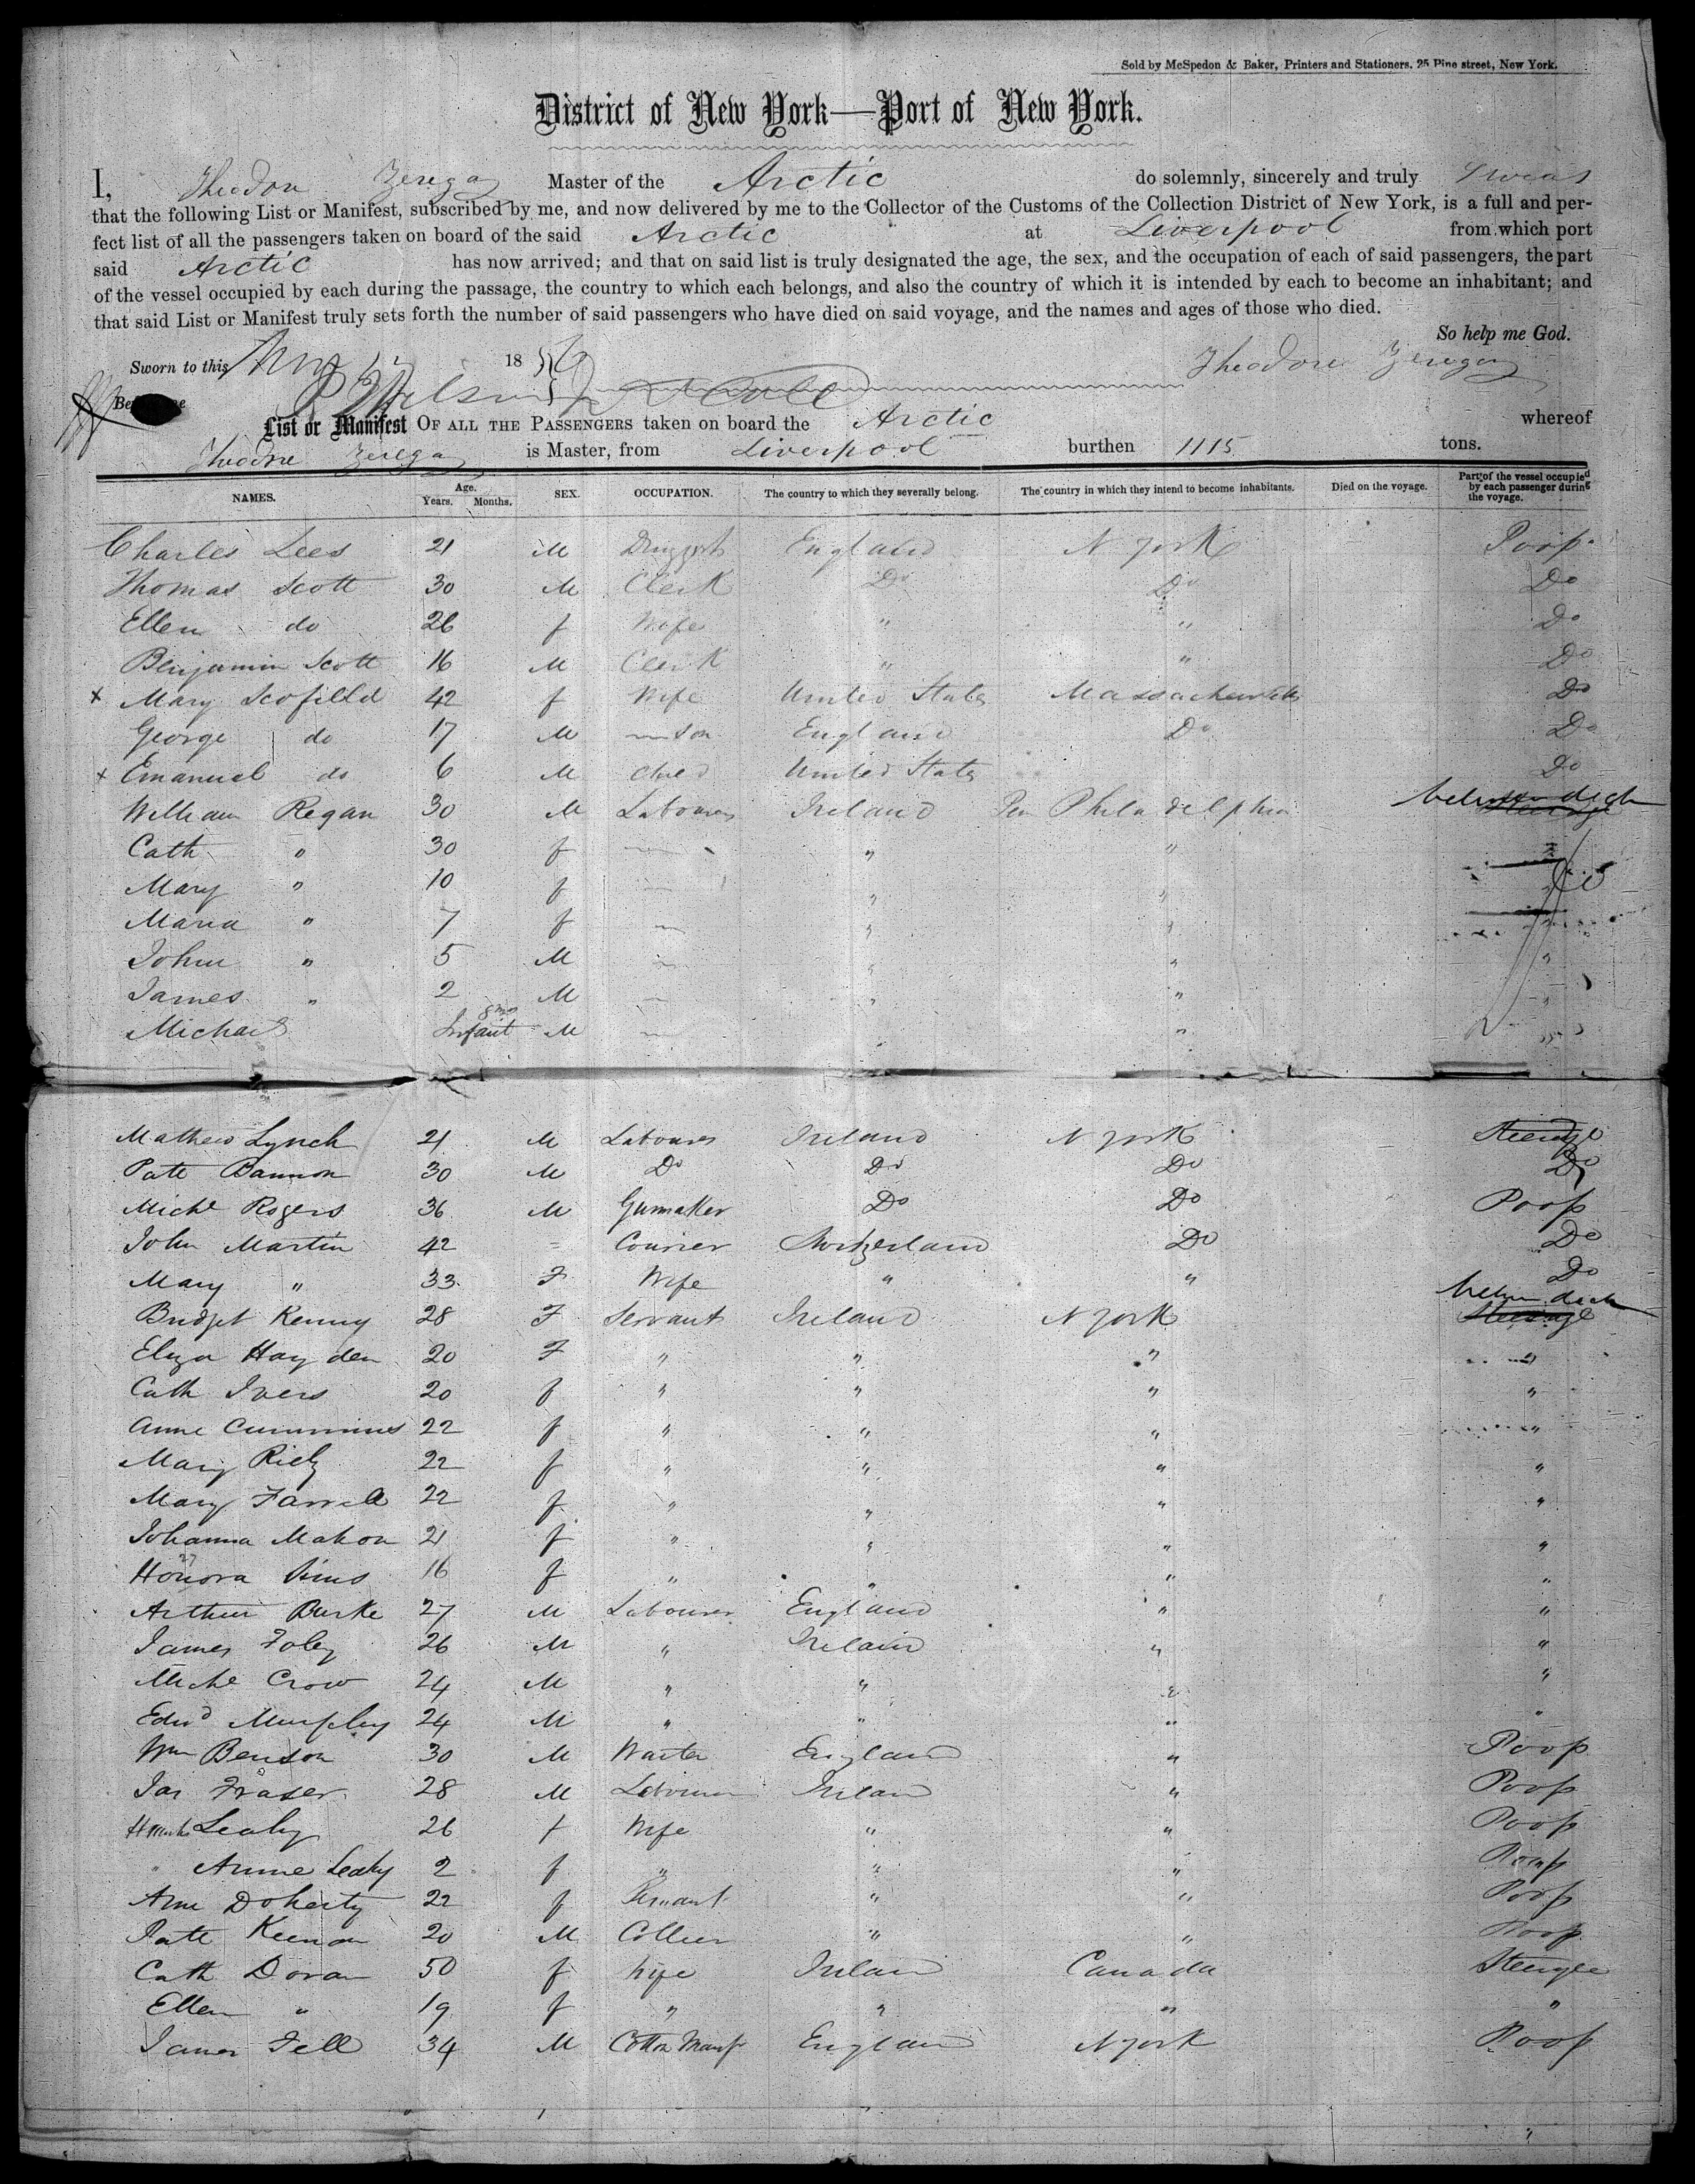 Sold by McSpedon & Baker, Printers and Stationers. 25 Pine street, New York.
District of New York—Port of New York.
I, Theodore Zerega Master of the Arctic do solemnly, sincerely and truly Swear
that the following List or Manifest, subscribed by me, and now delivered by me to the Collector of the Customs of the Collection District of New York, is a full and per-
fect list of all the passengers taken on board of the said Arctic at Liverpool from which port
said Arctic has now arrived; and that on said list is truly designated the age, the sex, and the occupation of each of said passengers, the part
of the vessel occupied by each during the passage, the country to which each belongs, and also the country of which it is intended by each to become an inhabitant; and
that said List or Manifest truly sets forth the number of said passengers who have died on said voyage, and the names and ages of those who died.
So help me God.
Sworn to this 18 Theodore Zerega
Before me
List or Manifest OF ALL THE PASSENGERS taken on board the Arctic whereof
Theodore Zerega is Master, from Liverpool burthen 1115 tons.
NAMES. Age. Years. Months. SEX. OCCUPATION. The country to which they severally belong. The country in which they intend to become inhabitants. Died on the voyage. Part of the vessel occupied by each passenger during the voyage.
Charles Lees 21 M Druggist England N York Poop
Thomas Scott 30 M Clerk Do Do Do
Ellen do 26 f Wife " " Do
Benjamin Scott 16 M Clerk " " Do
x Mary Scofield 42 f Wife United States Massachusetts Do
George do 17 M Son England Do Do
x Emanuel do 6 M Child United States Do
William Regan 30 M Labourer Ireland Philadelphia between deck Steerage
Cath " 30 f — " " "
Mary " 10 f — " " "
Maria " 7 f — " " "
John " 5 M — " " "
James " 2 M — " " "
Michael Infant 8 mos M — " " "
Mathew Lynch 21 M Labourer Ireland N York Steerage
Patt Bannon 30 M Do Do Do Do
Michl Rogers 36 M Gunmaker Do Do Poop
John Martin 42 = Courier Switzerland Do Do
Mary " 33 F Wife " " Do
Bridget Kenny 28 F Servant Ireland N York between deck Steerage
Eliza Hayden 20 F " " " "
Cath Ivers 20 f " " " "
Anne Cummins 22 f " " " "
Mary Riely 22 f " " " "
Mary Farrell 22 f " " " "
Johanna Mahon 21 f " " " "
Honora 16 f " " " "
Arthur Burke 27 M Labourer England " "
James Foley 26 M " Ireland " "
Michl Crow 24 M " " " "
Edwd Murphy 24 M " " " "
Wm Benson 30 M Waiter England " Poop
Jas Fraser 28 M Labourer Ireland " Poop
Leahy 26 f Wife " " Poop
" Anne Leahy 2 f " " " Poop
Ann Doherty 22 f Servant " " Poop
Patt Keenan 20 M Collier " " Poop
Cath Doran 50 f Wife Ireland Canada Steerage
Ellen " 19 f " " " "
James Fell 34 M Cotton Manfr England N York Poop